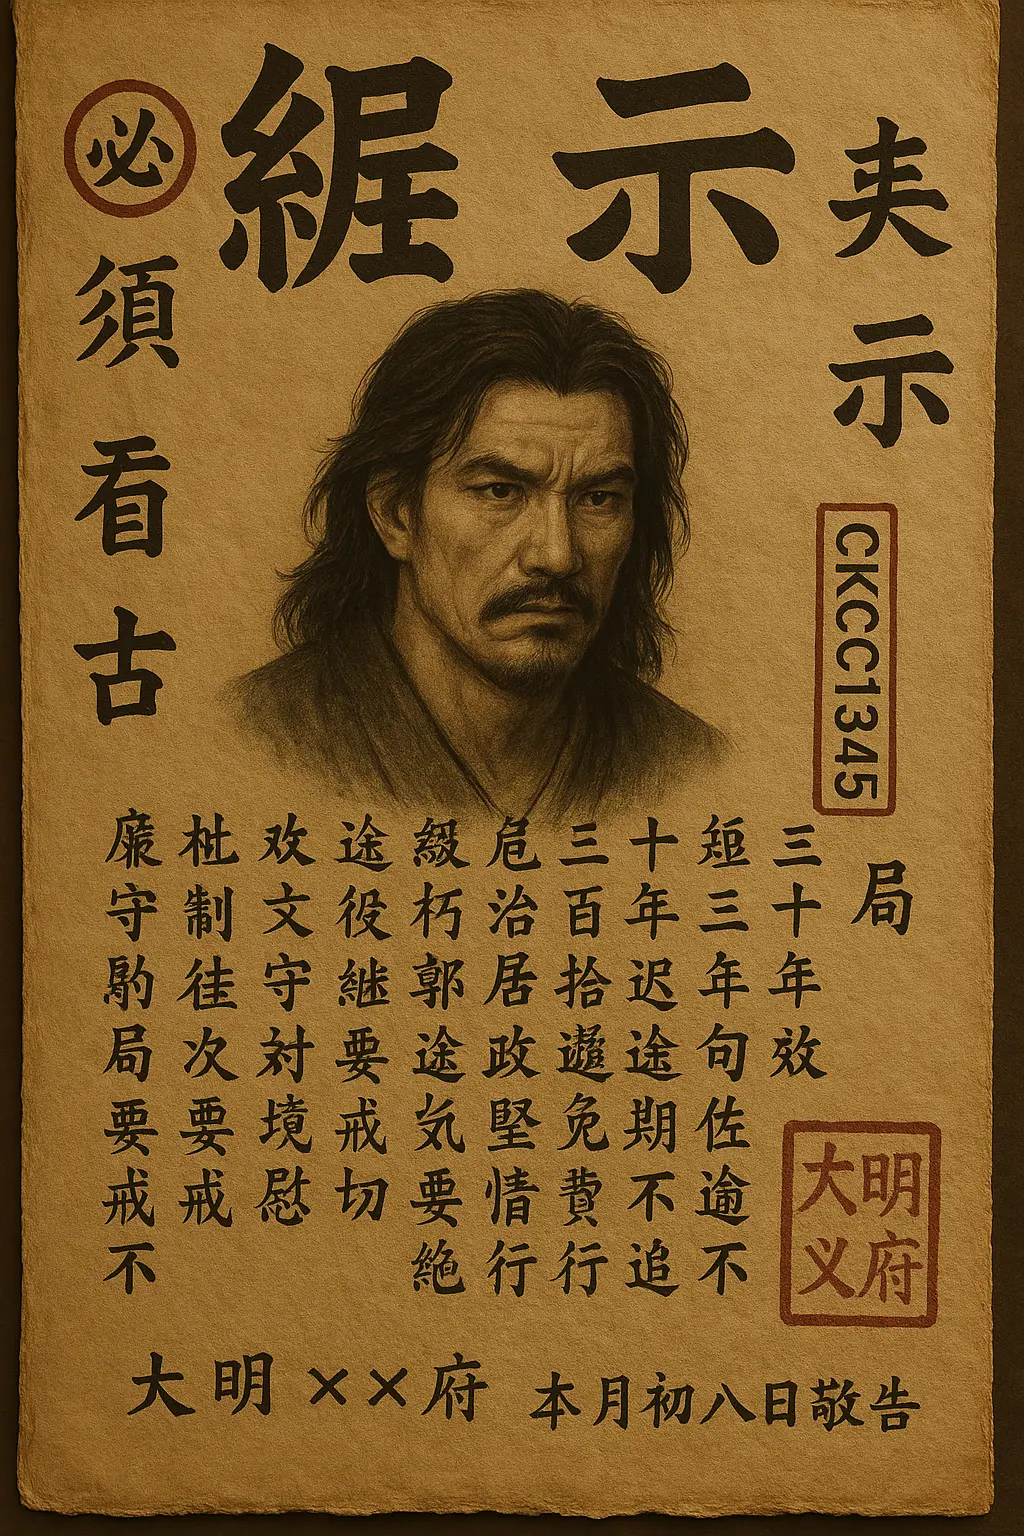 示
夹示
CKCC1345
局
三十年效
三年句佐逾不
十年迟途期不追
三百拾免費行
危治居政堅情行
朽郭途気要絕
途役継要戒切
文守対境慰
制往次要戒
守局要戒不
必須看古
大明
义府
大明××府
本月初八日敬告